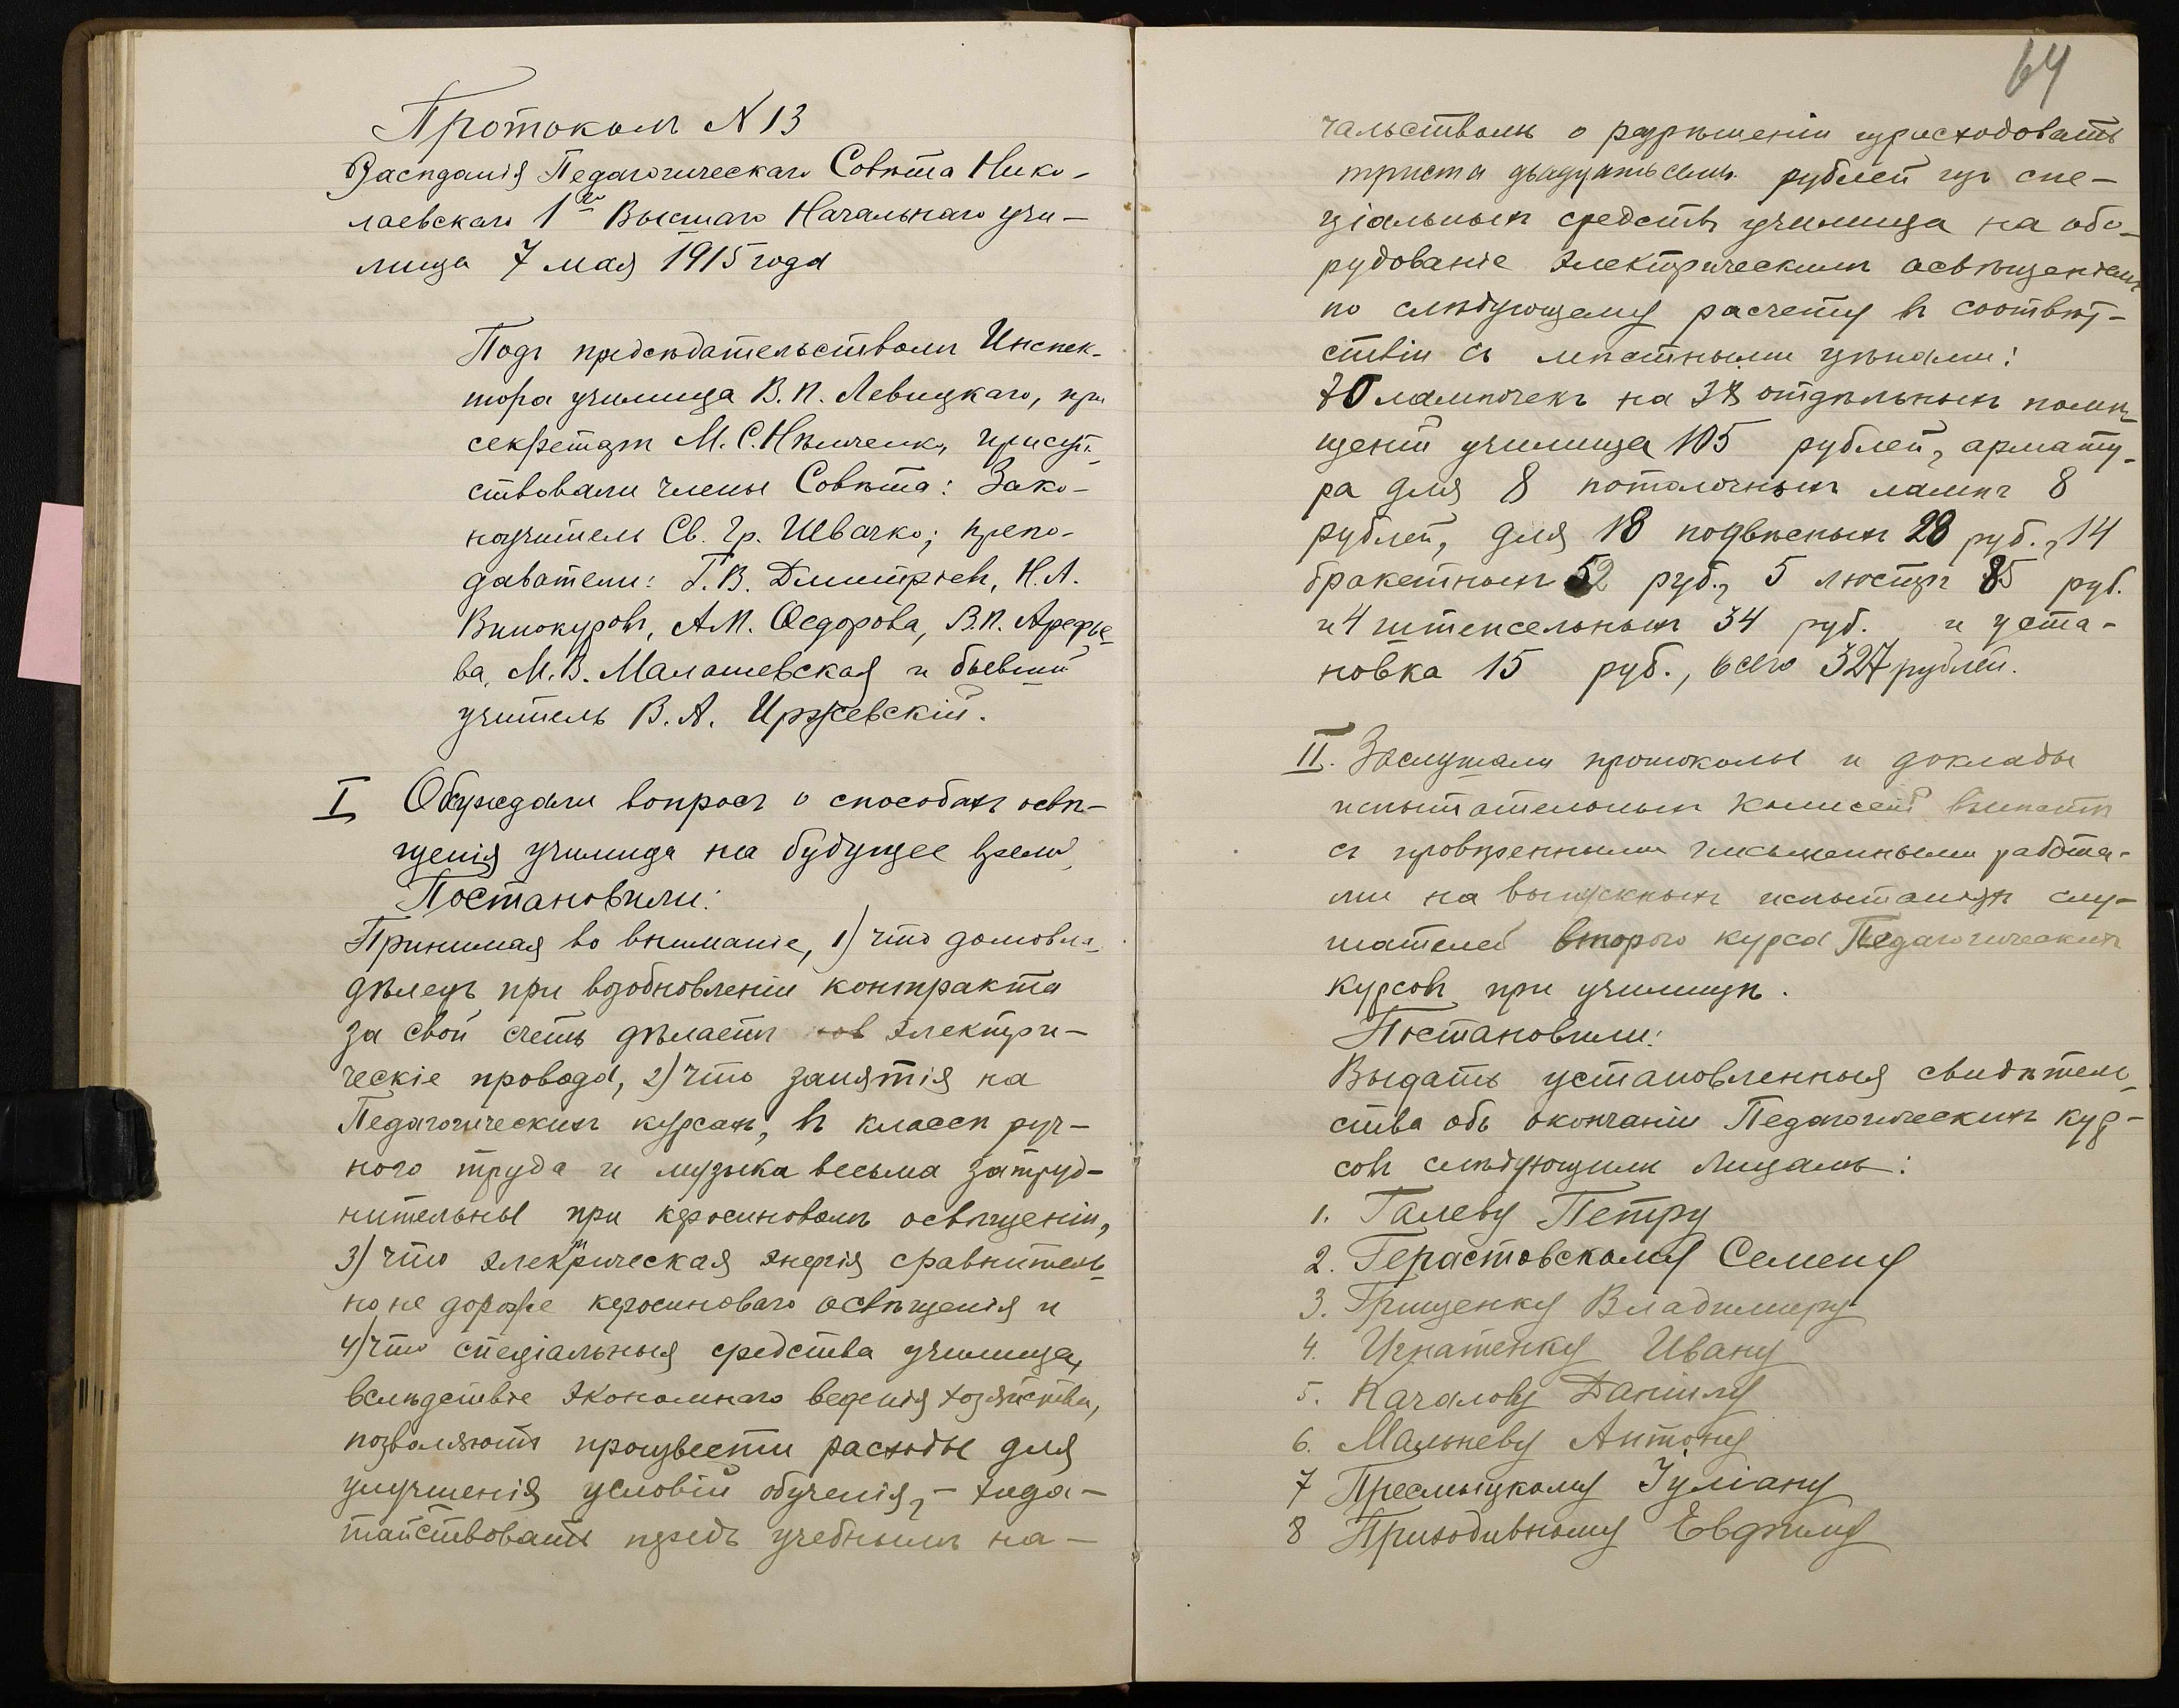 Протоколъ N 13
Засѣданія Педагогическаго Совѣта Нико-
лаевскаго 1го Высшаго Начальнаго учи-
лища 7 мая 1915 года
Подъ предсѣдательствомъ Инспек-
тора училища В. П. Левицкаго, при
секретарѣ М. С. Нѣмченк, присут-
ствовали члены Совѣта: Зако-
ноучитель Св. Гр. Швачко; препо-
даватели: Г. В. Дмитріевъ, Н. А.
Винокуровъ, А. М. Ѳедорова, В. П. Арефье-
ва, М. В. Малашевская и бывшій
учитель В. А. Иржевскій.
I Обсуждали вопросъ о способахъ освѣ-
щенія училища на будущее время,
Постановили:
Принимая во вниманіе, 1) что домовла-
дѣлецъ при возобновленіи контракта
за свой счетъ дѣлаетъ электри-
ческіе провода, 2) что занятія на
Педагогическихъ курсахъ, въ классѣ руч-
ного труда и музыка весьма затруд-
нительны при керосиновомъ освѣщеніи,
3) что электрическая энергія сравнитель-
но не дороже керосиноваго освѣщенія и
4) что спеціальныя средства училища,
вслѣдствіе экономнаго веденія хозяйства,
позволяютъ произвести расходы для
улучшенія условій обученія, - хода-
тайствовать предъ учебнымъ на-
64
чальствомъ о разрѣшеніи израсходовать
триста двадцать семь рублей изъ спе-
ціальныхъ средствъ училища на обо-
рудованіе электрическимъ освѣщеніемъ
по слѣдующему расчету въ соотвѣт-
ствіи съ мѣстными цѣнами:
70 лампочекъ на 38 отдѣльныхъ помѣ-
щеній училища 105 рублей, армату-
ра для 8 потолочныхъ лампъ 8
рублей, для 18 подвѣсныхъ 28 руб., 14
бракетныхъ 52 руб., 5 люстръ 85 руб.
и 4 штепсельныхъ 34 руб. и уста-
новка 15 руб., всего 327 рублей.
II. Заслушали протоколы и доклады
испытательныхъ комиссій вмѣстѣ
съ провѣренными письменными работа-
ми на выпускныхъ испытаніяхъ слу-
шателей второго курса Педагогическихъ
курсовъ при училищѣ.
Постановили:
Выдать установленныя свидѣтель-
ства объ окончаніи Педагогическихъ кур-
совъ слѣдующимъ лицамъ:
1. Галеву Петру
2. Герастовскому Семену
3. Грищенку Владимиру
4. Игнатенку Ивану
5. Качалову Даніилу
6. Мальневу Антону
7 Пресмыцкому Іуліану
8 Приходивному Евдниму